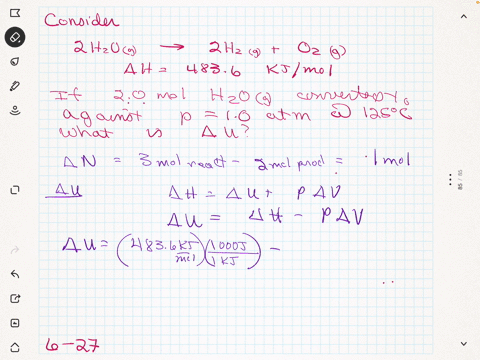 Consider
2H₂O(g) → 2H₂(g) + O₂(g)
ΔH = 483.6 KJ/mol
If 2.0 mol H₂O(g)
against p = 1.0 atm @ 125°C
what is ΔU?
ΔN = 3 mol react - 2 mol prod = 1 mol
ΔU ΔH = ΔU + PΔV
ΔU = ΔH - PΔV
ΔU = (483.6 KJ/mol)(1000J/1 KJ) -
6-27